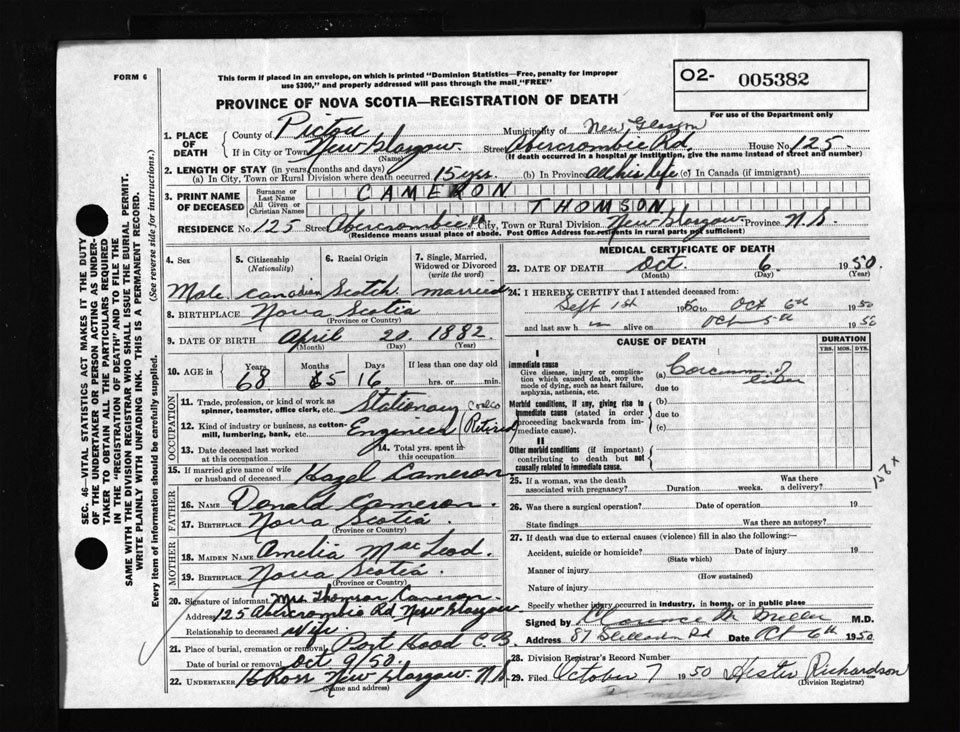 FORM 6
This form if placed in an envelope, on which is printed "Dominion Statistics—Free, penalty for improper
use $300," and properly addressed will pass through the mail "FREE"
O2- 005382
For use of the Department only
PROVINCE OF NOVA SCOTIA—REGISTRATION OF DEATH
1. PLACE OF DEATH
County of Pictou Municipality of New Glasgow
If in City or Town New Glasgow (Name) Street Abercrombie Rd. House No. 125.
(If death occurred in a hospital or institution, give the name instead of street and number)
2. LENGTH OF STAY (in years, months and days)
(a) In City, Town or Rural Division where death occurred 15 yrs. (b) In Province all his life (c) In Canada (if immigrant)
3. PRINT NAME OF DECEASED
Surname or Last Name CAMERON
All Given or Christian Names THOMSON
RESIDENCE No. 125 Street Abercrombie Rd City, Town or Rural Division New Glasgow Province N.S.
(Residence means usual place of abode. Post Office Address for residents in rural parts not sufficient)
4. Sex Male
5. Citizenship (Nationality) Canadian
6. Racial Origin Scotch
7. Single, Married, Widowed or Divorced (write the word) married
8. BIRTHPLACE Nova Scotia
(Province or Country)
9. DATE OF BIRTH April 20 1882
(Month) (Day) (Year)
10. AGE in Years 68 Months 5 Days 16 If less than one day old hrs. or min.
OCCUPATION
11. Trade, profession, or kind of work as spinner, teamster, office clerk, etc. Stationary
12. Kind of industry or business, as cotton-mill, lumbering, bank, etc. Engineer (Retired)
13. Date deceased last worked at this occupation
14. Total yrs. spent in this occupation
15. If married give name of wife or husband of deceased Hazel Cameron
FATHER
16. NAME Donald Cameron.
17. BIRTHPLACE Nova Scotia.
(Province or Country)
MOTHER
18. MAIDEN NAME Amelia MacLeod.
19. BIRTHPLACE Nova Scotia
(Province or Country)
20. Signature of informant Mrs. Thomson Cameron.
Address 125 Abercrombie Rd New Glasgow
Relationship to deceased Wife
21. Place of burial, cremation or removal Port Hood C.B.
Date of burial or removal Oct 9/50.
22. UNDERTAKER Ross New Glasgow N.S.
(Name and address)
MEDICAL CERTIFICATE OF DEATH
23. DATE OF DEATH Oct. 6 1950
(Month) (Day) (Year)
24. I HEREBY CERTIFY that I attended deceased from:
Sept 1st 1950 to Oct 6th 1950
and last saw h im alive on Oct 5th 1950
CAUSE OF DEATH
DURATION
YRS. MOS. DYS.
I
Immediate cause
Give disease, injury or complication which caused death, not the mode of dying, such as heart failure, asphyxia, asthenia, etc.
(a) Carcinoma of liver
due to
Morbid conditions, if any, giving rise to immediate cause (stated in order proceeding backwards from immediate cause).
(b)
due to
(c)
II
Other morbid conditions (if important) contributing to death but not causally related to immediate cause.
25. If a woman, was the death associated with pregnancy? Duration weeks. Was there a delivery?
26. Was there a surgical operation? Date of operation 19
State findings Was there an autopsy?
27. If death was due to external causes (violence) fill in also the following:
Accident, suicide or homicide? Date of injury 19
(State which)
Manner of injury
(How sustained)
Nature of injury
Specify whether injury occurred in industry, in home, or in public place
Signed by Clarence M. Miller M.D.
Address 87 Stellarton Rd Date Oct 6th 1950.
28. Division Registrar's Record Number
29. Filed October 7 1950 Hester Richardson
(Division Registrar)
SEC. 46—VITAL STATISTICS ACT MAKES IT THE DUTY
OF THE UNDERTAKER OR PERSON ACTING AS UNDER-
TAKER TO OBTAIN ALL THE PARTICULARS REQUIRED
IN THE "REGISTRATION OF DEATH" AND TO FILE THE
SAME WITH THE DIVISION REGISTRAR WHO SHALL ISSUE THE BURIAL PERMIT.
WRITE PLAINLY WITH UNFADING INK. THIS IS A PERMANENT RECORD.
Every item of information should be carefully supplied. (See reverse side for instructions.)